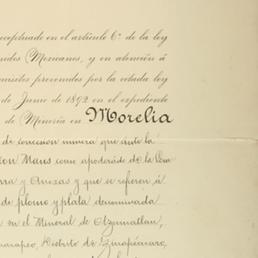 ceptuado en el artículo 6º de la ley
ndos Mexicanos, y en atención á
por la citada ley
de Junio de 1892 en el expediente
de Minería en Morelia
de concesion minera que ante la
como apoderado de la
y Anexas y que se refieren á
de plomo y plata denominada
en el Mineral de Ozumatlan,
Distrito de Zinapécuaro,